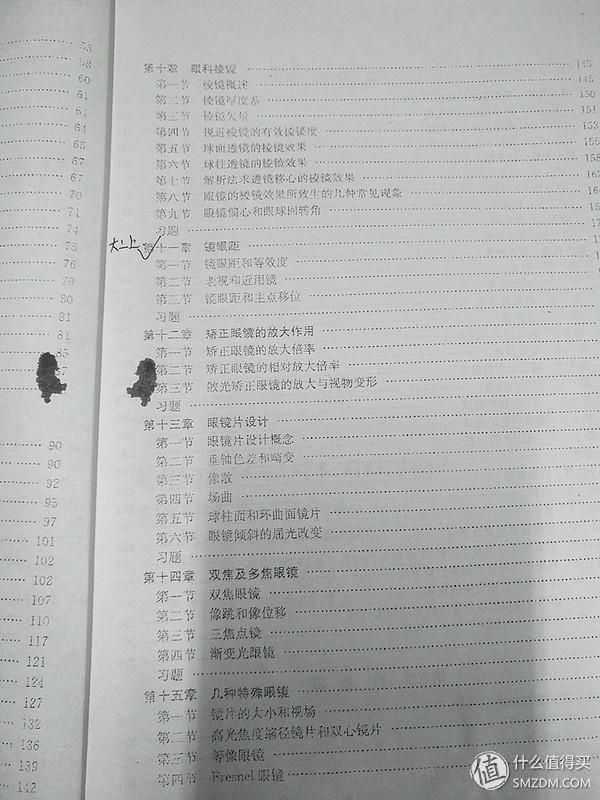 55
58
60
61
61
64
65
67
67
70
71
74
75
76
79
80
81
81
85
87
90
90
92
95
97
101
102
102
107
110
117
121
124
127
132
136
139
142
第十章 眼科棱镜 145
第一节 棱镜概述 145
第二节 棱镜厚度差 150
第三节 棱镜矢量 151
第四节 视近棱镜的有效棱镜度 153
第五节 球面透镜的棱镜效果 155
第六节 球柱透镜的棱镜效果 158
第七节 解析法求透镜移心的棱镜效果
第八节 眼镜的棱镜效果所致生的几种常见现象
第九节 眼镜偏心和眼球回转角
习题
大二上
第十一章 镜眼距
第一节 镜眼距和等效度
第二节 老视和近用镜
第三节 镜眼距和主点移位
习题
第十二章 矫正眼镜的放大作用
第一节 矫正眼镜的放大倍率
第二节 矫正眼镜的相对放大倍率
第三节 散光矫正眼镜的放大与视物变形
习题
第十三章 眼镜片设计
第一节 眼镜片设计概念
第二节 垂轴色差和畸变
第三节 像散
第四节 场曲
第五节 球柱面和环曲面镜片
第六节 眼镜倾斜的屈光改变
习题
第十四章 双焦及多焦眼镜
第一节 双焦眼镜
第二节 像跳和像位移
第三节 三焦点镜
第四节 渐变光眼镜
习题
第十五章 几种特殊眼镜
第一节 镜片的大小和视场
第二节 高光焦度缩径镜片和双心镜片
第三节 等像眼镜
第四节 Fresnel眼镜
值 什么值得买
SMZDM.COM